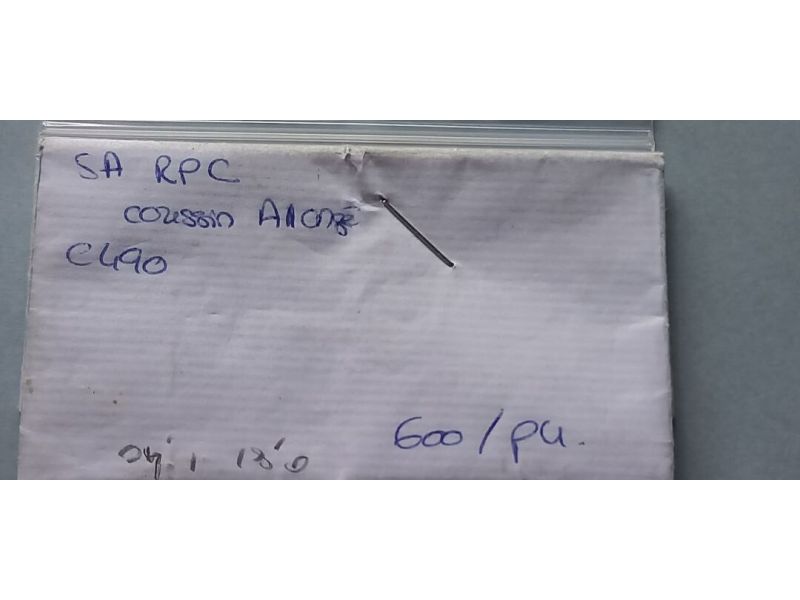 SA RPC
coussin Alongé
C490
600/pu.